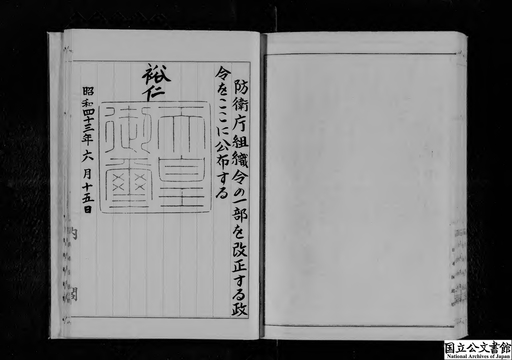 防衛庁組織令の一部を改正する政
令をここに公布する
裕仁
天皇
御璽
昭和四十三年六月十五日
内閣
国立公文書館
National Archives of Japan